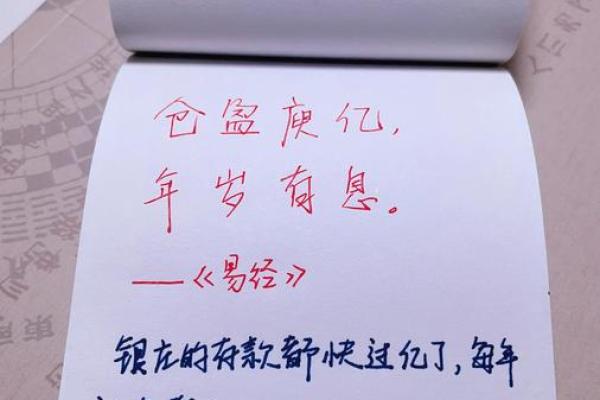 仓盈庾亿，
年岁有息。
——《易经》
银庄的存款都快过亿了，每年